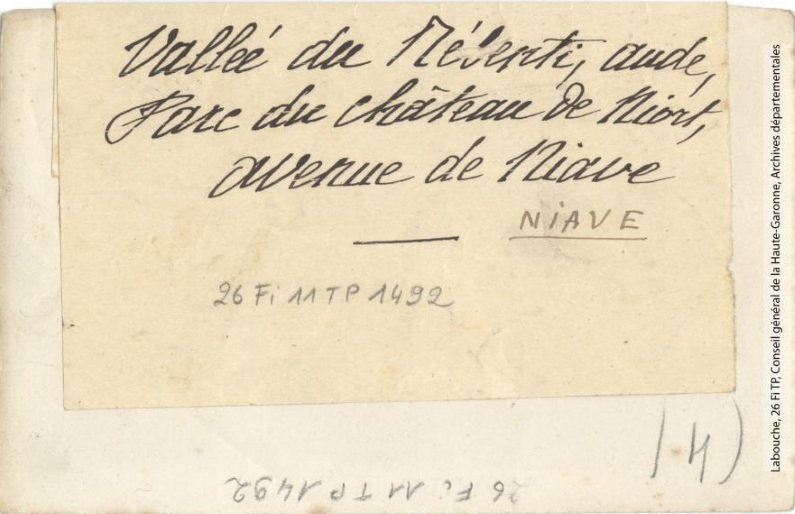 Vallée du Rébenti, aude,
Parc du château de Niort,
avenue de Niave
NIAVE
26 Fi 11 TP 1492
(4)
26 Fi 11 TP 1492
Labouche, 26 FI TP, Conseil général de la Haute-Garonne, Archives départementales